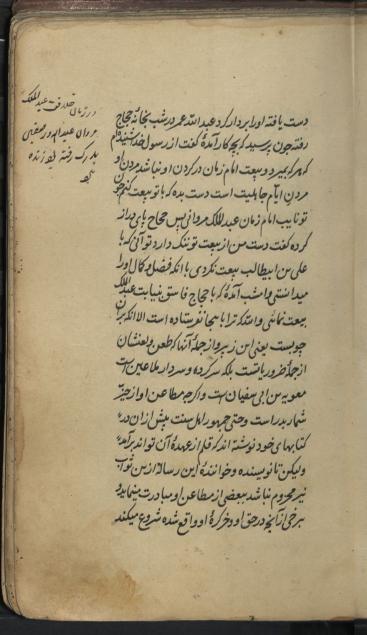 دست یافته اورا بردار کرد عبدالله عمر در شب بخانه حجاج
رفته چون پرسید که بچه کار آمدهٔ گفت از رسول خدا شنیده‌ام
که هر که بمیرد و بیعت امام زمان در کردن او نباشد مردن او
مردن ایام جاهلیت است دست بده که با تو بیعت کنم چون
تو نایب امام زمان عبدالملک مروانی پس حجاج پای دراز
کرده گفت دست من از بیعت تو ننک دارد تو آنی که با
علی بن ابیطالب بیعت نکردی با آنکه فضل و کمال او را
میدانستی و امشب آمدهٔ که با حجاج فاسق بنیابت عبدالملک
بیعت نمائی والله که ترا باینجا نفرستاده است الا آنکه بران
چوبست یعنی ابن زبیر و از جملهٔ آنها که طعن و لعنشان
از جملهٔ ضروریاتست بلکه سرکرده و سردار ملاعین است
معویة بن ابی سفیان است و اگرچه مطاعن او از حیز
شمار بدر است و حتی جمهور اهل سنت بیش از ان در
کتابهای خود نوشته اند که قلم از عهدهٔ آن تواند برآمد
ولیکن تا نویسنده و خوانندهٔ این رساله ازین ثواب
نیز محروم نباشد ببعضی از مطاعن او مبادرت مینماید و
برخی از آنچه در حق او و در خرکرهٔ او واقع شده شروع میکند
در زمان خلافت عبدالملک
مروان عبدالله در
بدرک رفته